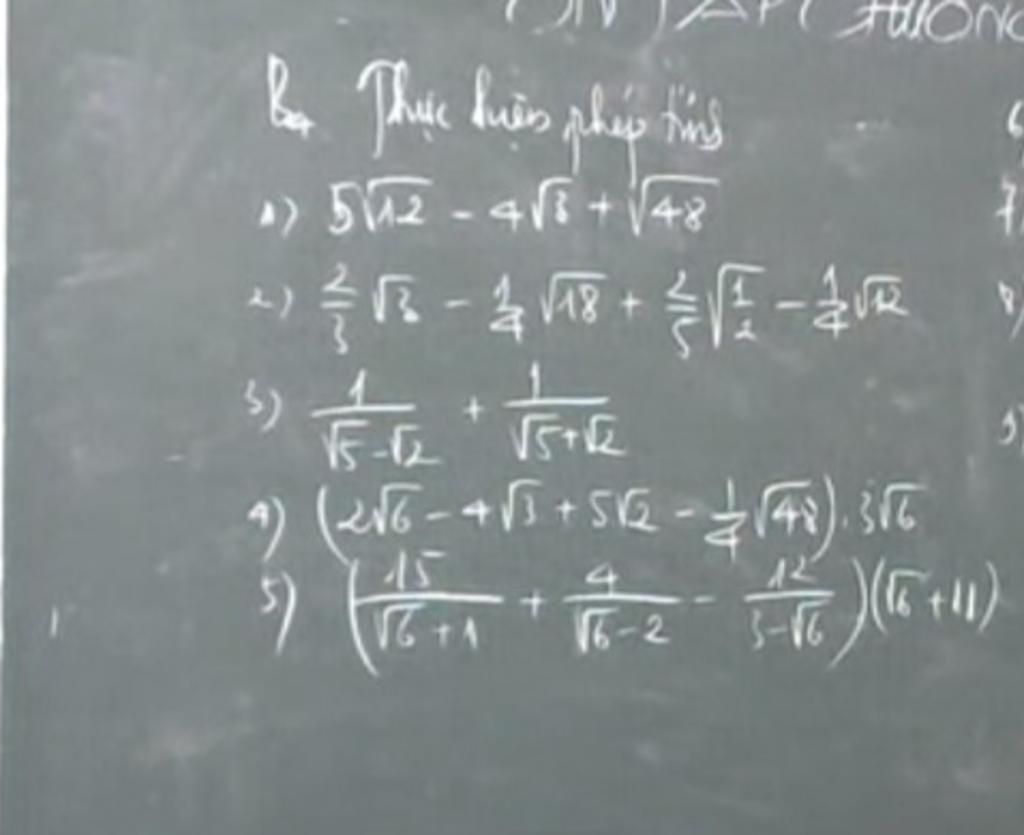 ÔN TẬP CHƯƠNG
B1 Thực hiện phép tính
1) 5√12 - 4√3 + √48
2) 2/3 √3 - 1/4 √18 + 2/5 √1/2 - 1/4 √12
3) 1/(√5-√2) + 1/(√5+√2)
4) (2√6 - 4√3 + 5√2 - 1/4 √48).3√6
5) (15/(√6+1) + 4/(√6-2) - 12/(3-√6))(√6+11)